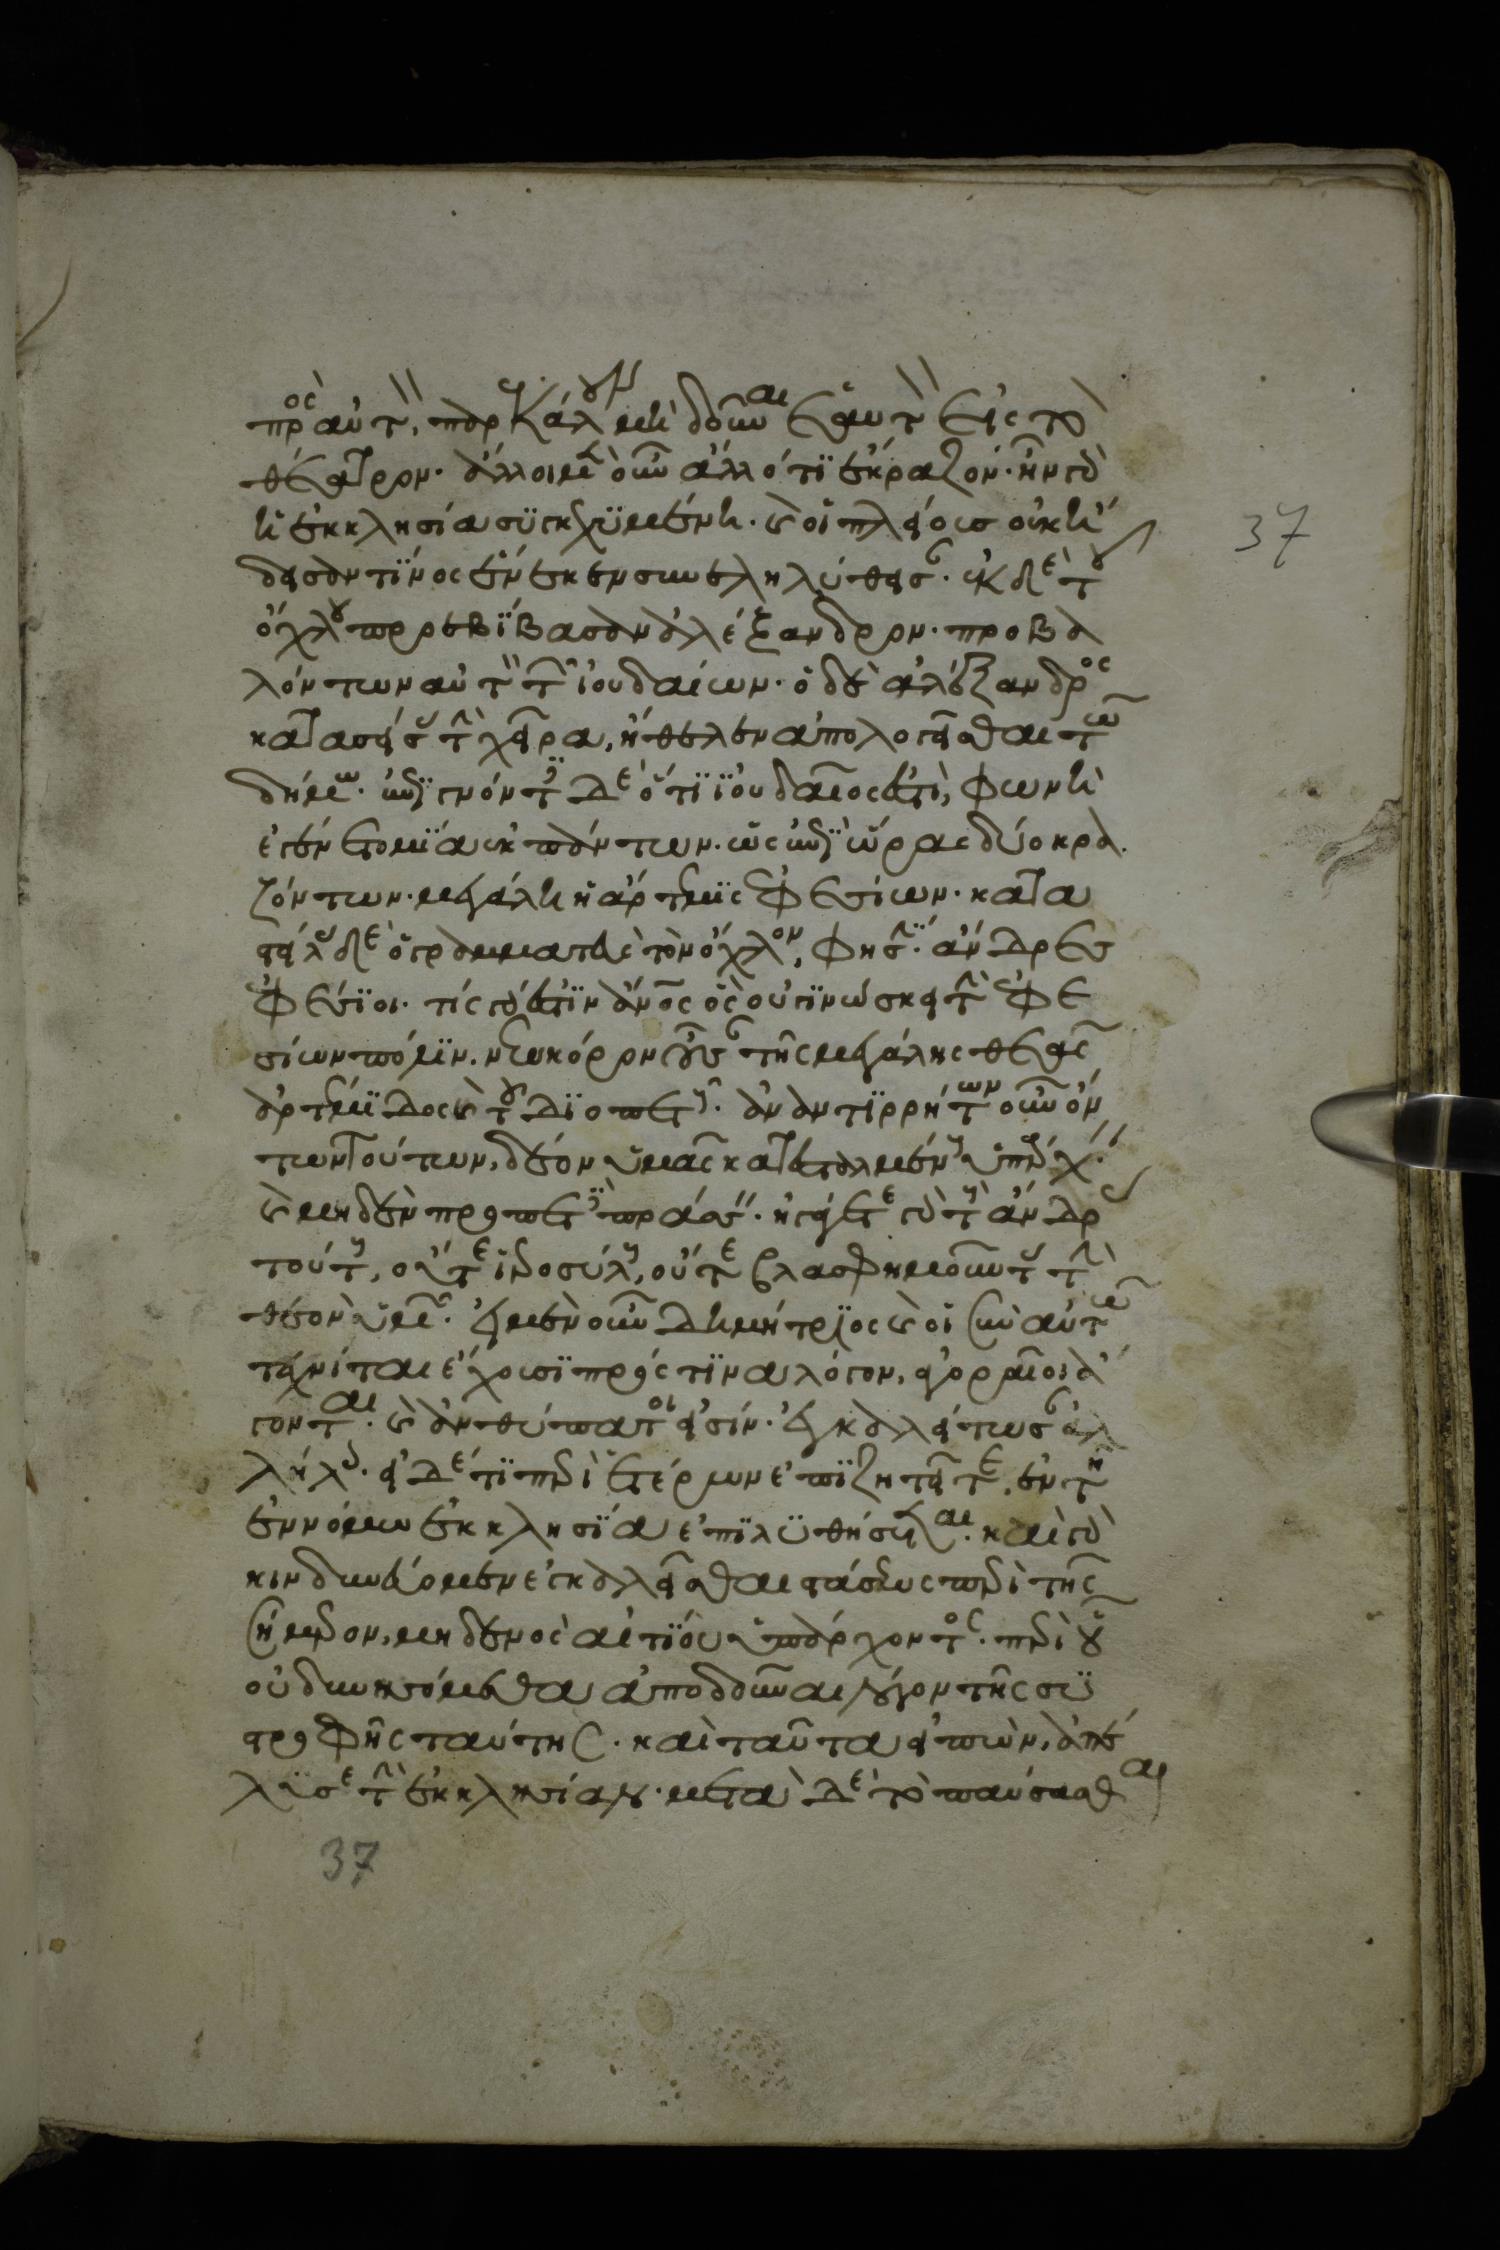 πρὸς αὐτὸν, παρεκάλουν μὴ δοῦναι ἑαυτὸν εἰς τὸ
θέατρον. ἄλλοι μὲν οὖν ἄλλό τι ἔκραζον. ἦν γὰρ
ἡ ἐκκλησία συγκεχυμένη. καὶ οἱ πλείους οὐκ ἤ
δεισαν τίνος ἕνεκεν συνεληλύθεισαν. ἐκ δὲ τοῦ
ὄχλου προεβίβασαν ἀλέξανδρον. προβα
λόντων αὐτὸν τῶν ἰουδαίων. ὁ δὲ ἀλέξανδρος
κατασείσας τὴν χεῖρα, ἤθελεν ἀπολογεῖσθαι τῶ
δήμω. ἐπιγνόντων δὲ ὅτι ἰουδαῖος ἐστὶ, φωνὴ
ἐγένετο μία ἐκ πάντων. ὡς ἐπὶ ὥρας δύο κρα
ζόντων. μεγάλη ἡ ἄρτεμις ἐφεσίων. κατα
στείλας δὲ ὁ γραμματεὺς τὸν ὄχλον, φησίν. ἄνδρες
ἐφέσιοι. τίς γάρ ἐστιν ἄνθρωπος ὃς οὐ γινώσκει τὴν ἐφε
σίων πόλιν. νεωκόρον οὖσαν τῆς μεγάλης θεᾶς
ἀρτέμιδος καὶ τοῦ διοπετοῦς. ἀναντιρρήτων οὖν ὄν
των τούτων, δέον ὑμᾶς κατεσταλμένους ὑπάρχειν
καὶ μηδὲν προπετὲς πράσσειν. ἠγάγετε γὰρ τοὺς ἄνδρας
τούτους, οὔτε ἱεροσύλους, οὔτε βλασφημοῦντας τὴν
θεὸν ὑμῶν. εἰ μὲν οὖν δημήτριος καὶ οἱ σὺν αὐτῶ
τεχνίται ἔχουσι πρός τινα λόγον, ἀγοραῖοι ἄ
γονται. καὶ ἀνθύπατοι εἰσίν. ἐγκαλείτωσαν ἀλ
λήλοις. εἰ δέ τι περὶ ἑτέρων ἐπιζητεῖτε, ἐν τῆ
ἐννόμω ἐκκλησία ἐπιλυθήσεται. καὶ γὰρ
κινδυνεύομεν ἐγκαλεῖσθαι στάσεως περὶ τῆς
σήμερον, μηδενὸς αἰτίου ὑπάρχοντος. περὶ οὗ
οὐ δυνησόμεθα ἀποδοῦναι λόγον τῆς συ
στροφῆς ταύτης. καὶ ταῦτα εἰπὼν, ἀπέ
λυσε τὴν ἐκκλησίαν. μετὰ δὲ τὸ παύσασθαι
37
37